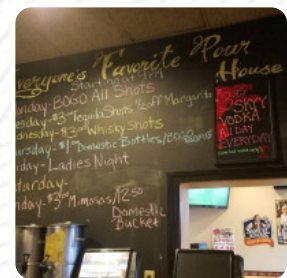 Everyone's Favorite Pour House
Starting at 7PM
Monday-BOGO All Shots
Tuesday-$3 Tequila Shots ½ off Margarita
Wednesday-$3 Whisky Shots
Thursday-$1 Domestic Bottles/BOGO
Friday-Ladies Night
Saturday-
Sunday-$3 Mimosas/12.50
Domestic
Bucket
SKYY
VODKA
ALL DAY
EVERYDAY